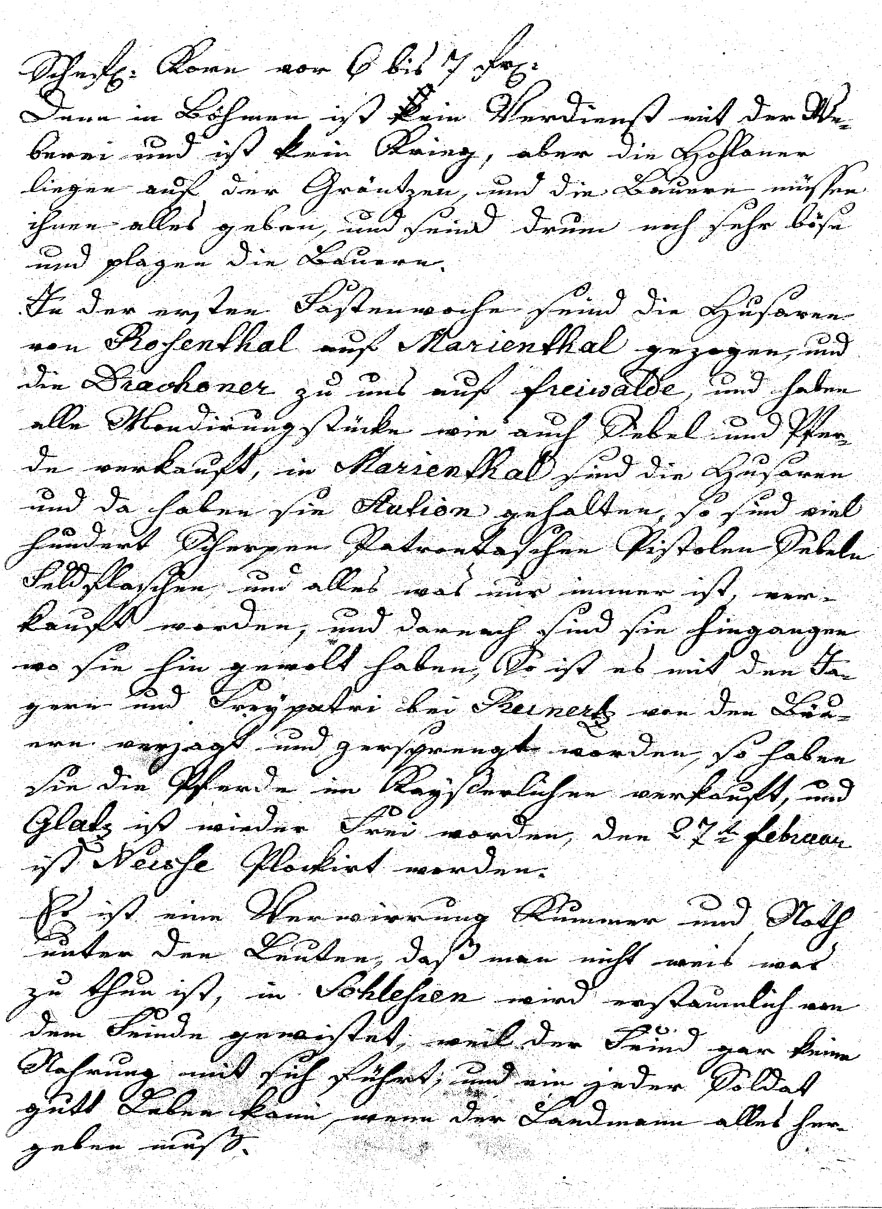 Scheffl: Korn vor 6 bis 7 Frx:
Denn in Böhmen ist kein Verdienst mit der We-
berei und ist kein Krieg, aber die Hohlaner
liegen auf der Gräntzen, und die Bauern müssen
ihnen alles geben, und seind drum noch sehr böse
und plagen die Bauern.
In der ersten Fastenwoche seind die Husaren
von Rosenthal auf Marienthal gezogen, und
die Drachoner zu uns auf freiwalde, und haben
alle Mondirungsstücke wie auch Sebel und Pfer-
de verkauft, in Marienthal sind die Husaren
und da haben sie Aution gehalten, so sind viel
hundert Scherpen Patrontaschen Pistolen Sebeln
Feldflaschen und alles was nur immer ist, ver-
kauft worden, und darnach sind sie hingangen
wo sie hin gewolt haben, So ist es mit den Jä-
gern und Freypatri bei Reinertz von den Bäu-
ern verjagt und zersprengt worden, so haben
sie die Pferde im Kayßerlichen verkauft, und
Glatz ist wieder Frei worden, den 27th februar
ist Neisse Plockirt worden.
Es ist eine Verwirrung Kummer und Noth
unter den Leuten, daß man nicht weis was
zu thun ist, in Schlesien wird erstaunlich von
dem Feinde gewistet, weil der Feind gar keine
Nahrung mit sich führt, und ein jeder Soldat
gutt Leben kann, wenn der Landmann alles her-
geben muß.